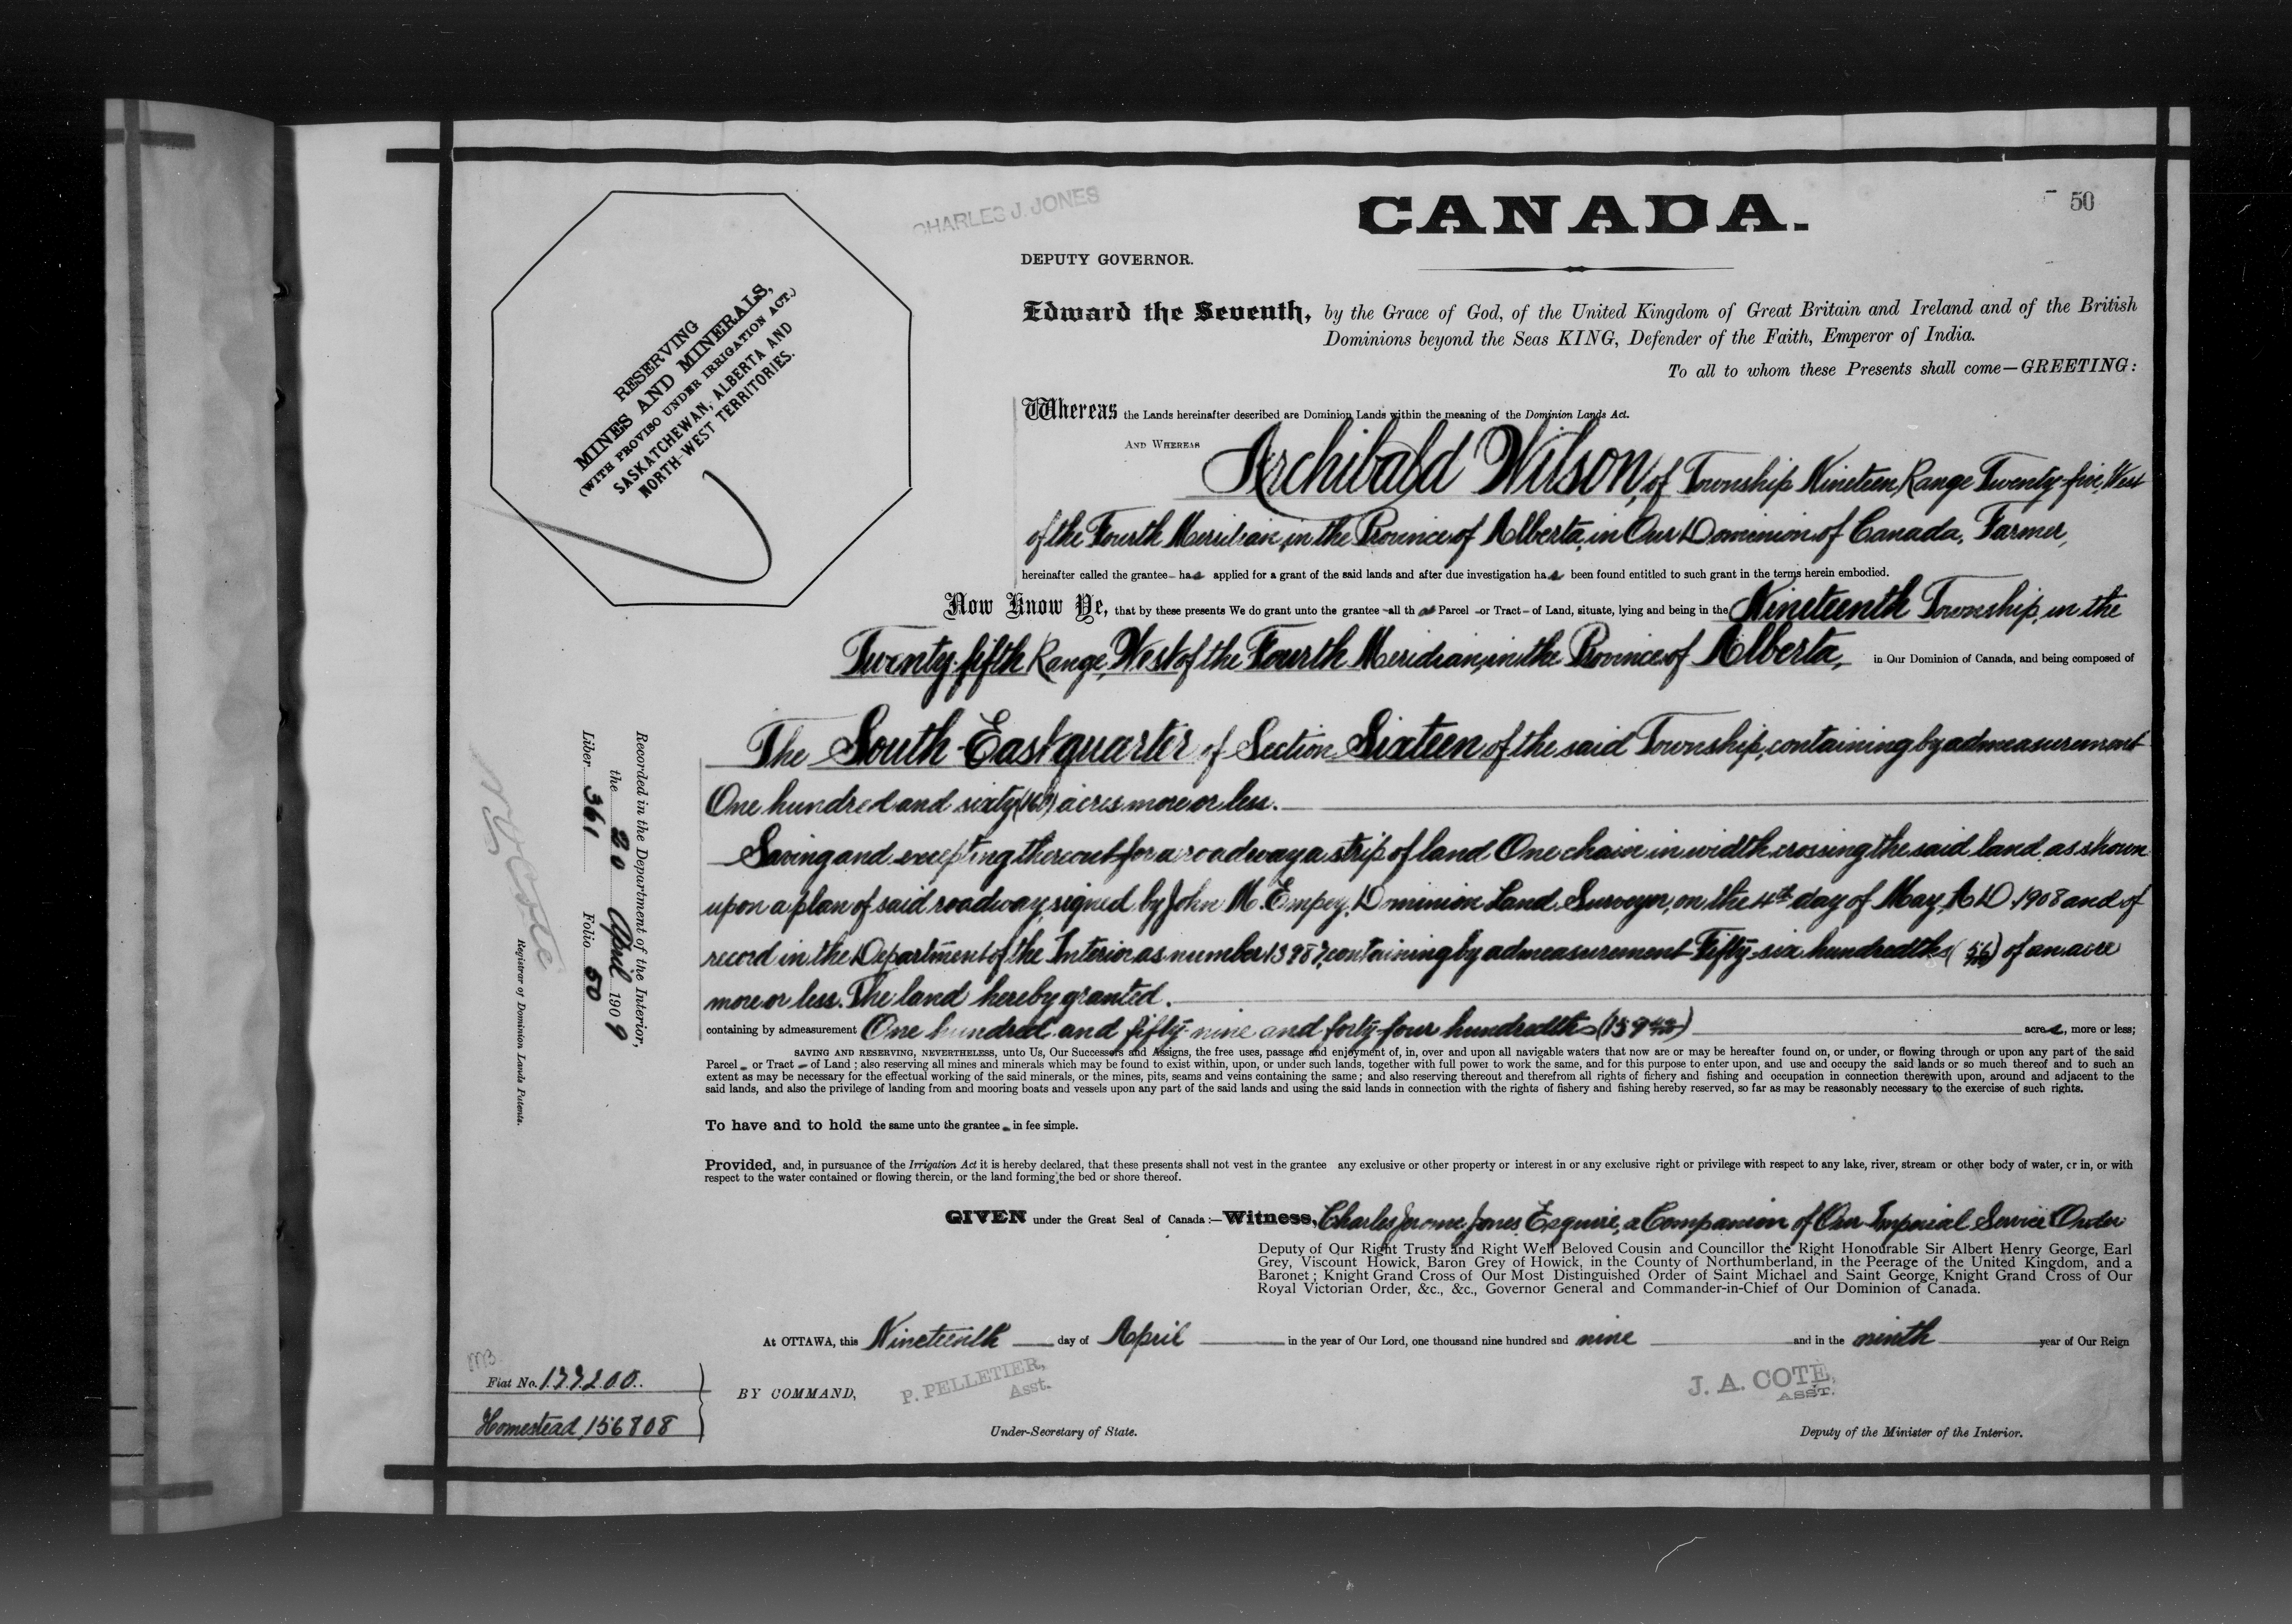 50
CHARLES J. JONES
CANADA.
DEPUTY GOVERNOR.
Edward the Seventh, by the Grace of God, of the United Kingdom of Great Britain and Ireland and of the British
Dominions beyond the Seas KING, Defender of the Faith, Emperor of India.
To all to whom these Presents shall come—GREETING:
RESERVING
MINES AND MINERALS,
(WITH PROVISO UNDER IRRIGATION ACT.)
SASKATCHEWAN, ALBERTA AND
NORTH-WEST TERRITORIES.
Whereas the Lands hereinafter described are Dominion Lands within the meaning of the Dominion Lands Act.
AND WHEREAS Archibald Wilson, of Township Nineteen, Range Twenty-five, West
of the Fourth Meridian, in the Province of Alberta, in Our Dominion of Canada, Farmer,
hereinafter called the grantee – has applied for a grant of the said lands and after due investigation has been found entitled to such grant in the terms herein embodied.
Now Know Ye, that by these presents We do grant unto the grantee – all that Parcel – or Tract – of Land, situate, lying and being in the Nineteenth Township, in the
Twenty-fifth Range, West of the Fourth Meridian, in the Province of Alberta, in Our Dominion of Canada, and being composed of
The South-East quarter of Section Sixteen of the said Township, containing by admeasurement
One hundred and sixty (160) acres more or less.
Saving and excepting thereout for a roadway a strip of land One chain in width crossing the said land as shown
upon a plan of said roadway, signed by John M. Empey, Dominion Land Surveyor, on the 4th day of May, A.D. 1908 and of
record in the Department of the Interior as number containing by admeasurement Fifty-six hundredths (56/100) of an acre
more or less. The land hereby granted.
containing by admeasurement One hundred and fifty-nine and forty-four hundredths (159 44/100) acres, more or less;
SAVING AND RESERVING, NEVERTHELESS, unto Us, Our Successors and Assigns, the free uses, passage and enjoyment of, in, over and upon all navigable waters that now are or may be hereafter found on, or under, or flowing through or upon any part of the said
Parcel – or Tract – of Land; also reserving all mines and minerals which may be found to exist within, upon, or under such lands, together with full power to work the same, and for this purpose to enter upon, and use and occupy the said lands or so much thereof and to such an
extent as may be necessary for the effectual working of the said minerals, or the mines, pits, seams and veins containing the same; and also reserving thereout and therefrom all rights of fishery and fishing and occupation in connection therewith upon, around and adjacent to the
said lands, and also the privilege of landing from and mooring boats and vessels upon any part of the said lands and using the said lands in connection with the rights of fishery and fishing hereby reserved, so far as may be reasonably necessary to the exercise of such rights.
To have and to hold the same unto the grantee – in fee simple.
Provided, and, in pursuance of the Irrigation Act it is hereby declared, that these presents shall not vest in the grantee any exclusive or other property or interest in or any exclusive right or privilege with respect to any lake, river, stream or other body of water, or in, or with
respect to the water contained or flowing therein, or the land forming the bed or shore thereof.
GIVEN under the Great Seal of Canada:—Witness, Charles Jerome Jones Esquire, a Companion of Our Imperial Service Order
Deputy of Our Right Trusty and Right Well Beloved Cousin and Councillor the Right Honourable Sir Albert Henry George, Earl
Grey, Viscount Howick, Baron Grey of Howick, in the County of Northumberland, in the Peerage of the United Kingdom, and a
Baronet; Knight Grand Cross of Our Most Distinguished Order of Saint Michael and Saint George, Knight Grand Cross of Our
Royal Victorian Order, &c., &c., Governor General and Commander-in-Chief of Our Dominion of Canada.
At OTTAWA, this Nineteenth day of April in the year of Our Lord, one thousand nine hundred and nine and in the ninth year of Our Reign
BY COMMAND,
P. PELLETIER,
Asst.
Under-Secretary of State.
J. A. COTE,
ASST.
Deputy of the Minister of the Interior.
Recorded in the Department of the Interior,
the 20 April 1909
Liber 361 Folio 50
Registrar of Dominion Lands Patents.
Fiat No.
Homestead, 156808